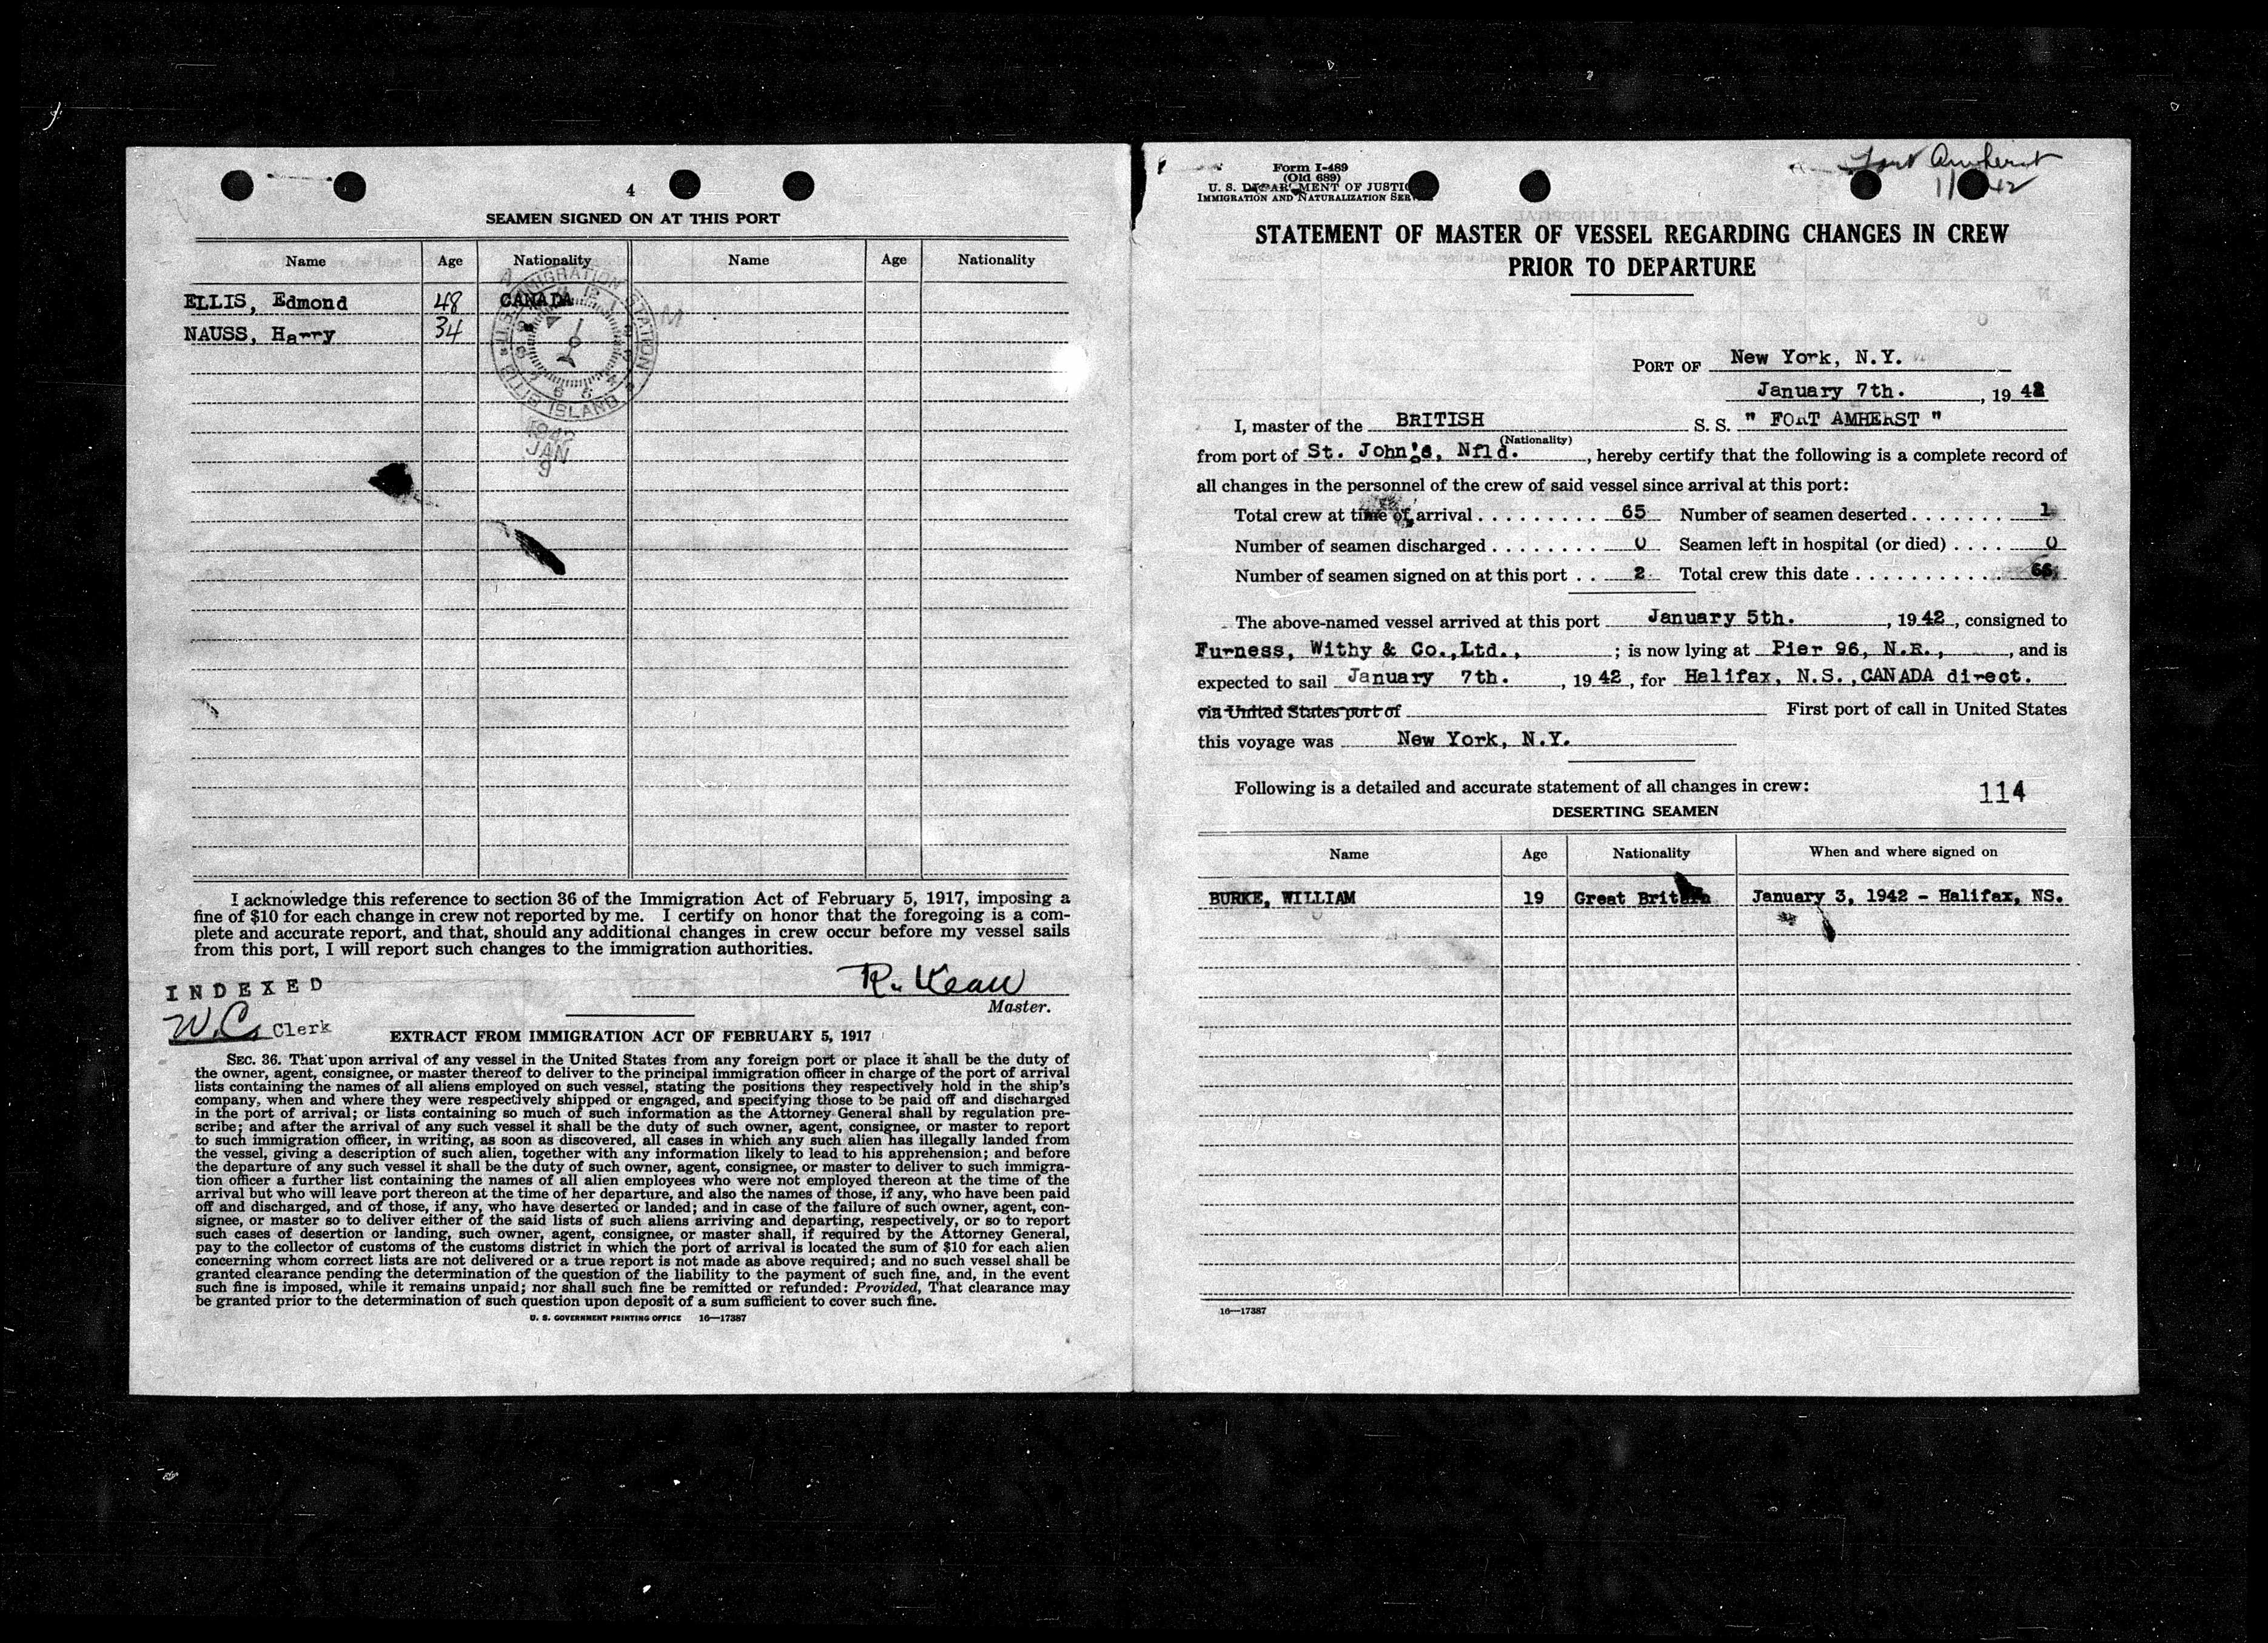 4
SEAMEN SIGNED ON AT THIS PORT
Name Age Nationality Name Age Nationality
ELLIS, Edmond 48 CANADA
NAUSS, Harry 34
U.S. IMMIGRATION STATION
ELLIS ISLAND
1942
JAN
9
I acknowledge this reference to section 36 of the Immigration Act of February 5, 1917, imposing a
fine of $10 for each change in crew not reported by me. I certify on honor that the foregoing is a com-
plete and accurate report, and that, should any additional changes in crew occur before my vessel sails
from this port, I will report such changes to the immigration authorities.
R. Kean
Master.
INDEXED
W.C. Clerk
EXTRACT FROM IMMIGRATION ACT OF FEBRUARY 5, 1917
SEC. 36. That upon arrival of any vessel in the United States from any foreign port or place it shall be the duty of
the owner, agent, consignee, or master thereof to deliver to the principal immigration officer in charge of the port of arrival
lists containing the names of all aliens employed on such vessel, stating the positions they respectively hold in the ship's
company, when and where they were respectively shipped or engaged, and specifying those to be paid off and discharged
in the port of arrival; or lists containing so much of such information as the Attorney General shall by regulation pre-
scribe; and after the arrival of any such vessel it shall be the duty of such owner, agent, consignee, or master to report
to such immigration officer, in writing, as soon as discovered, all cases in which any such alien has illegally landed from
the vessel, giving a description of such alien, together with any information likely to lead to his apprehension; and before
the departure of any such vessel it shall be the duty of such owner, agent, consignee, or master to deliver to such immigra-
tion officer a further list containing the names of all alien employees who were not employed thereon at the time of the
arrival but who will leave port thereon at the time of her departure, and also the names of those, if any, who have been paid
off and discharged, and of those, if any, who have deserted or landed; and in case of the failure of such owner, agent, con-
signee, or master so to deliver either of the said lists of such aliens arriving and departing, respectively, or so to report
such cases of desertion or landing, such owner, agent, consignee, or master shall, if required by the Attorney General,
pay to the collector of customs of the customs district in which the port of arrival is located the sum of $10 for each alien
concerning whom correct lists are not delivered or a true report is not made as above required; and no such vessel shall be
granted clearance pending the determination of the question of the liability to the payment of such fine, and, in the event
such fine is imposed, while it remains unpaid; nor shall such fine be remitted or refunded: Provided, That clearance may
be granted prior to the determination of such question upon deposit of a sum sufficient to cover such fine.
U. S. GOVERNMENT PRINTING OFFICE 16—17387
Form I-489
(Old 689)
U. S. DEPARTMENT OF JUSTICE
IMMIGRATION AND NATURALIZATION SERVICE
Fort Amherst
STATEMENT OF MASTER OF VESSEL REGARDING CHANGES IN CREW
PRIOR TO DEPARTURE
PORT OF New York, N.Y.
January 7th. , 19 42
I, master of the BRITISH S. S. " FORT AMHERST "
(Nationality)
from port of St. John's, Nfld. , hereby certify that the following is a complete record of
all changes in the personnel of the crew of said vessel since arrival at this port:
Total crew at time of arrival . . . . . . . . . . 65 Number of seamen deserted . . . . . . . 1
Number of seamen discharged . . . . . . . . 0 Seamen left in hospital (or died) . . . . 0
Number of seamen signed on at this port . . 2 Total crew this date . . . . . . . . . . . . 66
The above-named vessel arrived at this port January 5th. , 19 42 , consigned to
Furness, Withy & Co.,Ltd., ; is now lying at Pier 96, N.R., , and is
expected to sail January 7th. , 19 42 , for Halifax, N.S.,CANADA direct.
via United States port of First port of call in United States
this voyage was New York, N.Y.
Following is a detailed and accurate statement of all changes in crew: 114
DESERTING SEAMEN
Name Age Nationality When and where signed on
BURKE, WILLIAM 19 Great Britain January 3, 1942 - Halifax, NS.
16—17387